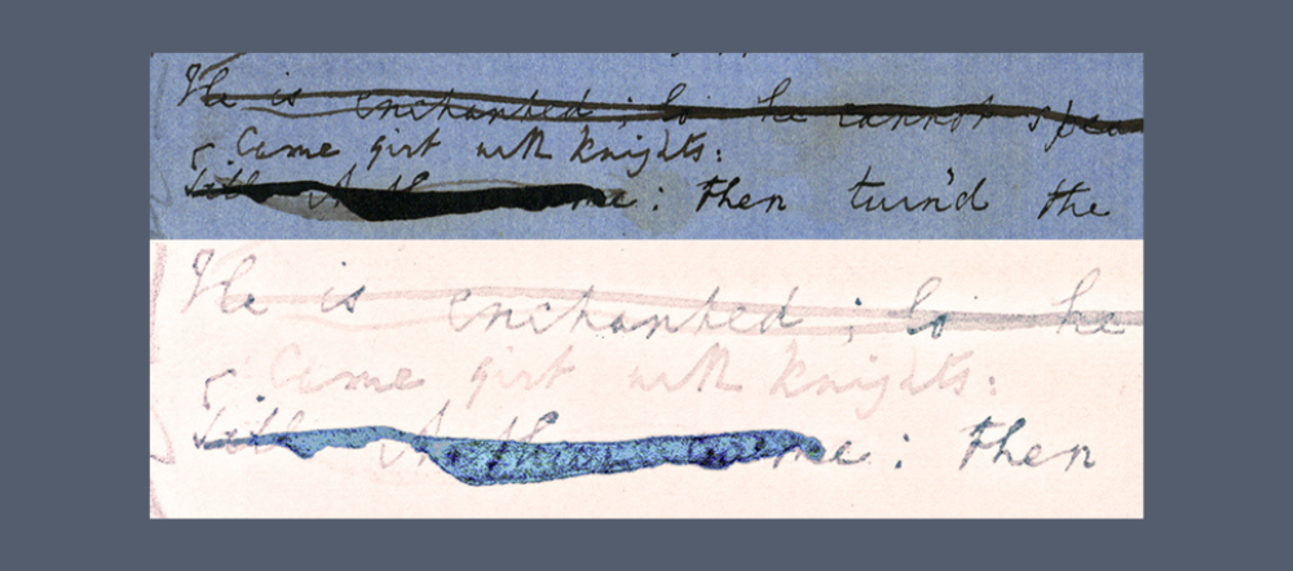 He is enchanted ; lo he cannot spea
Came girt with knights:
Till me : then turn'd the
He is enchanted ; lo he
Came girt with knights:
Till Arthur came : then